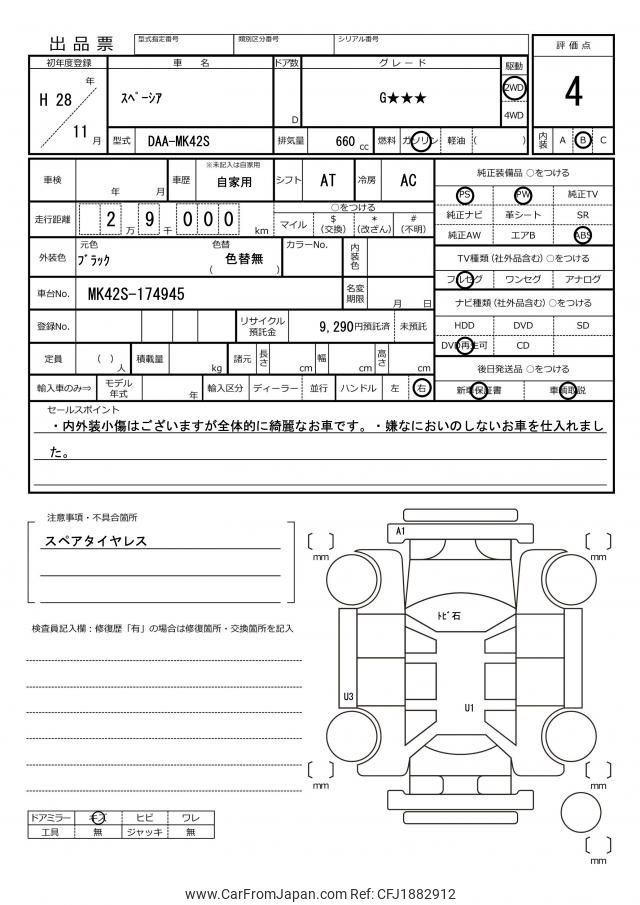 出品票
型式指定番号
類別区分番号
シリアル番号
初年度登録
車 名
ドア数
グレード
駆動
評価点
H 28
年
11
月
ｽﾍﾟｰｼｱ
D
G★★★
2WD
4WD
4
型式
DAA-MK42S
排気量
660
cc
燃料
ガソリン
軽油
( )
内装
A
B
C
車検
年 月
車歴
※未記入は自家用
自家用
シフト
AT
冷房
AC
純正装備品 ○をつける
PS
PW
純正TV
純正ナビ
革シート
SR
純正AW
エアB
ABS
走行距離
2
万
9
千
0 0 0
km
○をつける
マイル
$
(交換)
*
(改ざん)
#
(不明)
外装色
元色
ﾌﾞﾗｯｸ
色替
( 色替無 )
カラーNo.
内装色
TV種類 (社外品含む) ○をつける
フルセグ
ワンセグ
アナログ
車台No.
MK42S-174945
名変期限
月 日
ナビ種類 (社外品含む) ○をつける
HDD
DVD
SD
DVD再生可
CD
登録No.
リサイクル預託金
9,290円預託済
未預託
定員
( ) 人
積載量
kg
諸元
長さ
cm
幅
cm
高さ
cm
後日発送品 ○をつける
新車保証書
車輌取説
輸入車のみ⇒
モデル年式
年
輸入区分
ディーラー
並行
ハンドル
左
右
セールスポイント
・内外装小傷はございますが全体的に綺麗なお車です。・嫌なにおいのしないお車を仕入れまし
た。
注意事項・不具合箇所
スペアタイヤレス
検査員記入欄：修復歴「有」の場合は修復箇所・交換箇所を記入
A1
mm
mm
ﾄﾋﾞ石
U3
U1
mm
mm
mm
ドアミラー
キズ
ヒビ
ワレ
工具
無
ジャッキ
無
www.CarFromJapan.com Ref: CFJ1882912